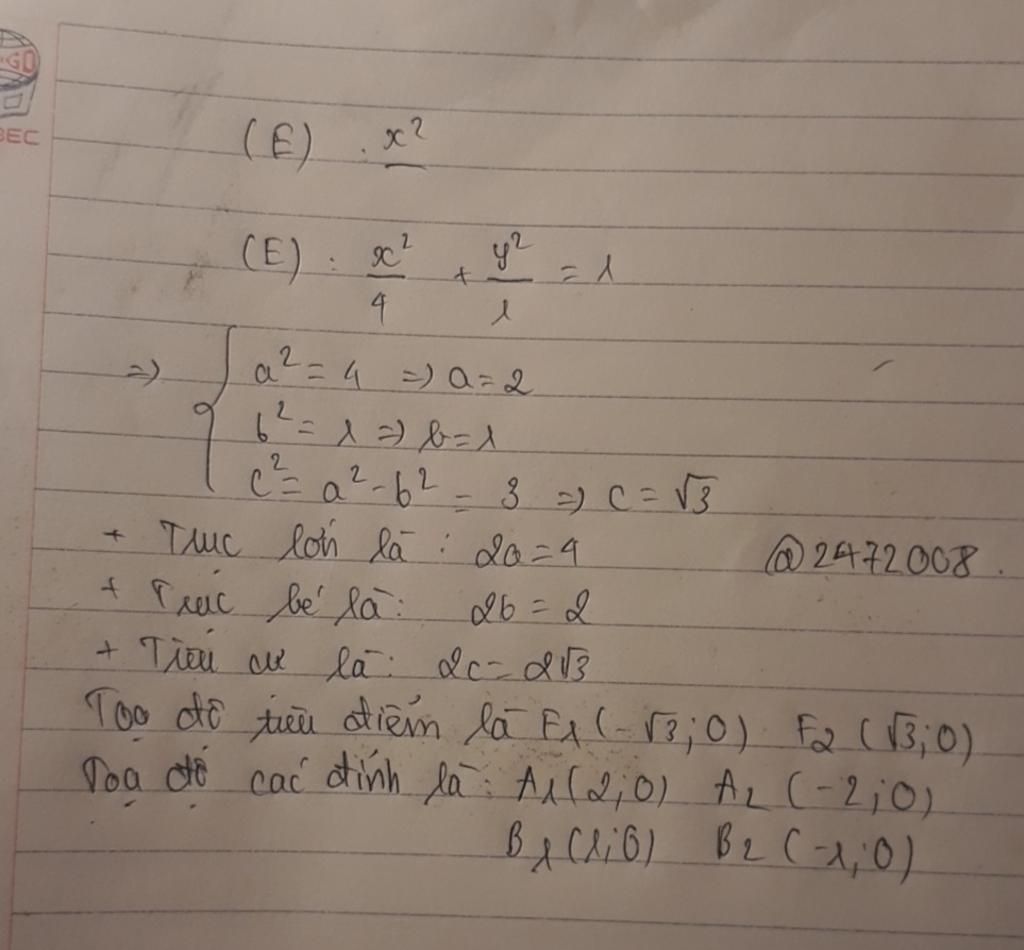 GO
BEC
(E) . x²
(E) : x²/4 + y²/1 = 1
=> { a² = 4 => a = 2
b² = 1 => b = 1
c² = a² - b² = 3 => c = √3
+ Trục lớn là : 2a = 4 @2472008.
+ Trục bé là : 2b = 2
+ Tiêu cự là : 2c = 2√3
Toạ độ tiêu điểm là F1 (-√3; 0) F2 (√3; 0)
Toạ độ các đỉnh là : A1 (2; 0) A2 (-2; 0)
B1 (1; 0) B2 (-1; 0)